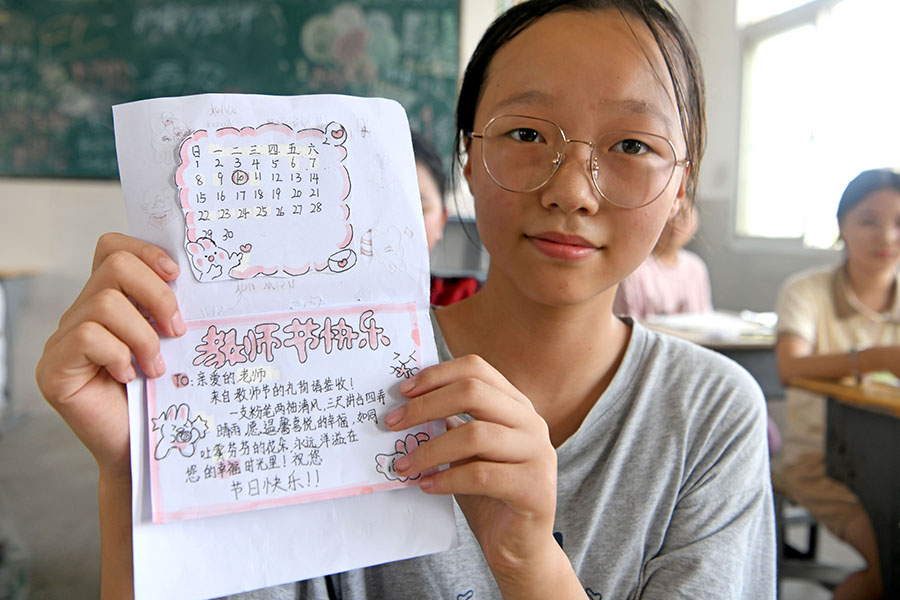 日 一 二 三 四 五 六
1 2 3 4 5 6 7
8 9 10 11 12 13 14
15 16 17 18 19 20 21
22 23 24 25 26 27 28
29 30
教师节快乐
TO:亲爱的老师
来自教师节的礼物请签收!
一支粉笔两袖清风,三尺讲台四季
晴雨,愿温馨喜悦的幸福,如同
吐露芬芳的花朵,永远洋溢在
您的幸福时光里!祝您
节日快乐!!